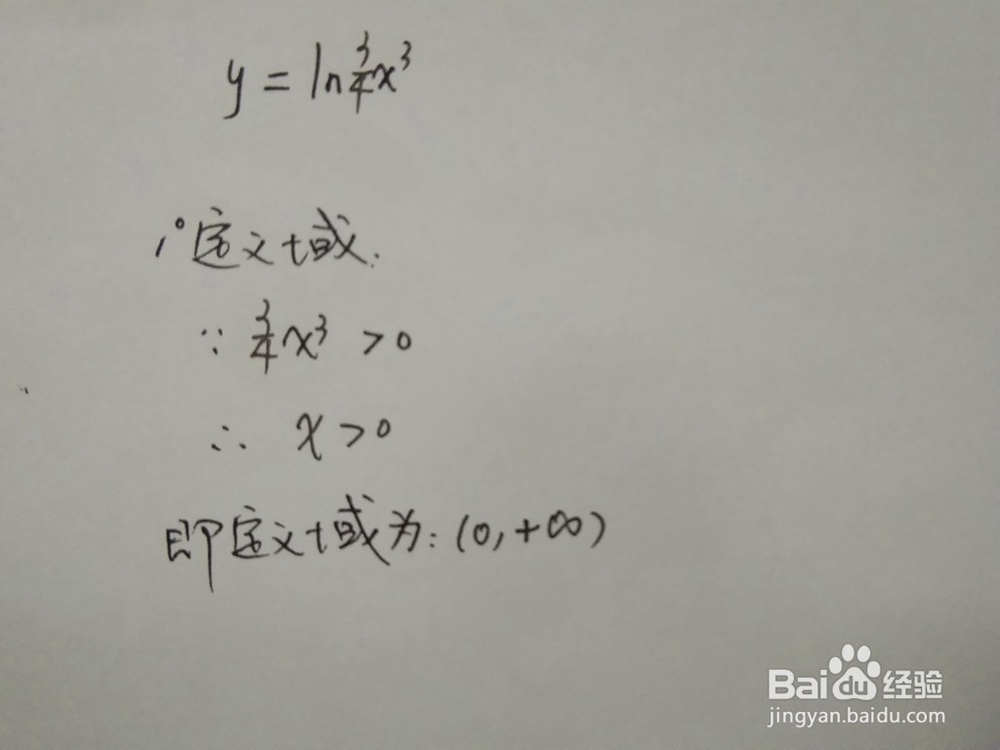 y = ln¾x³
1°定义域:
∵ ¾x³ > 0
∴ x > 0
即定义域为: (0, +∞)
Baidu经验
jingyan.baidu.com